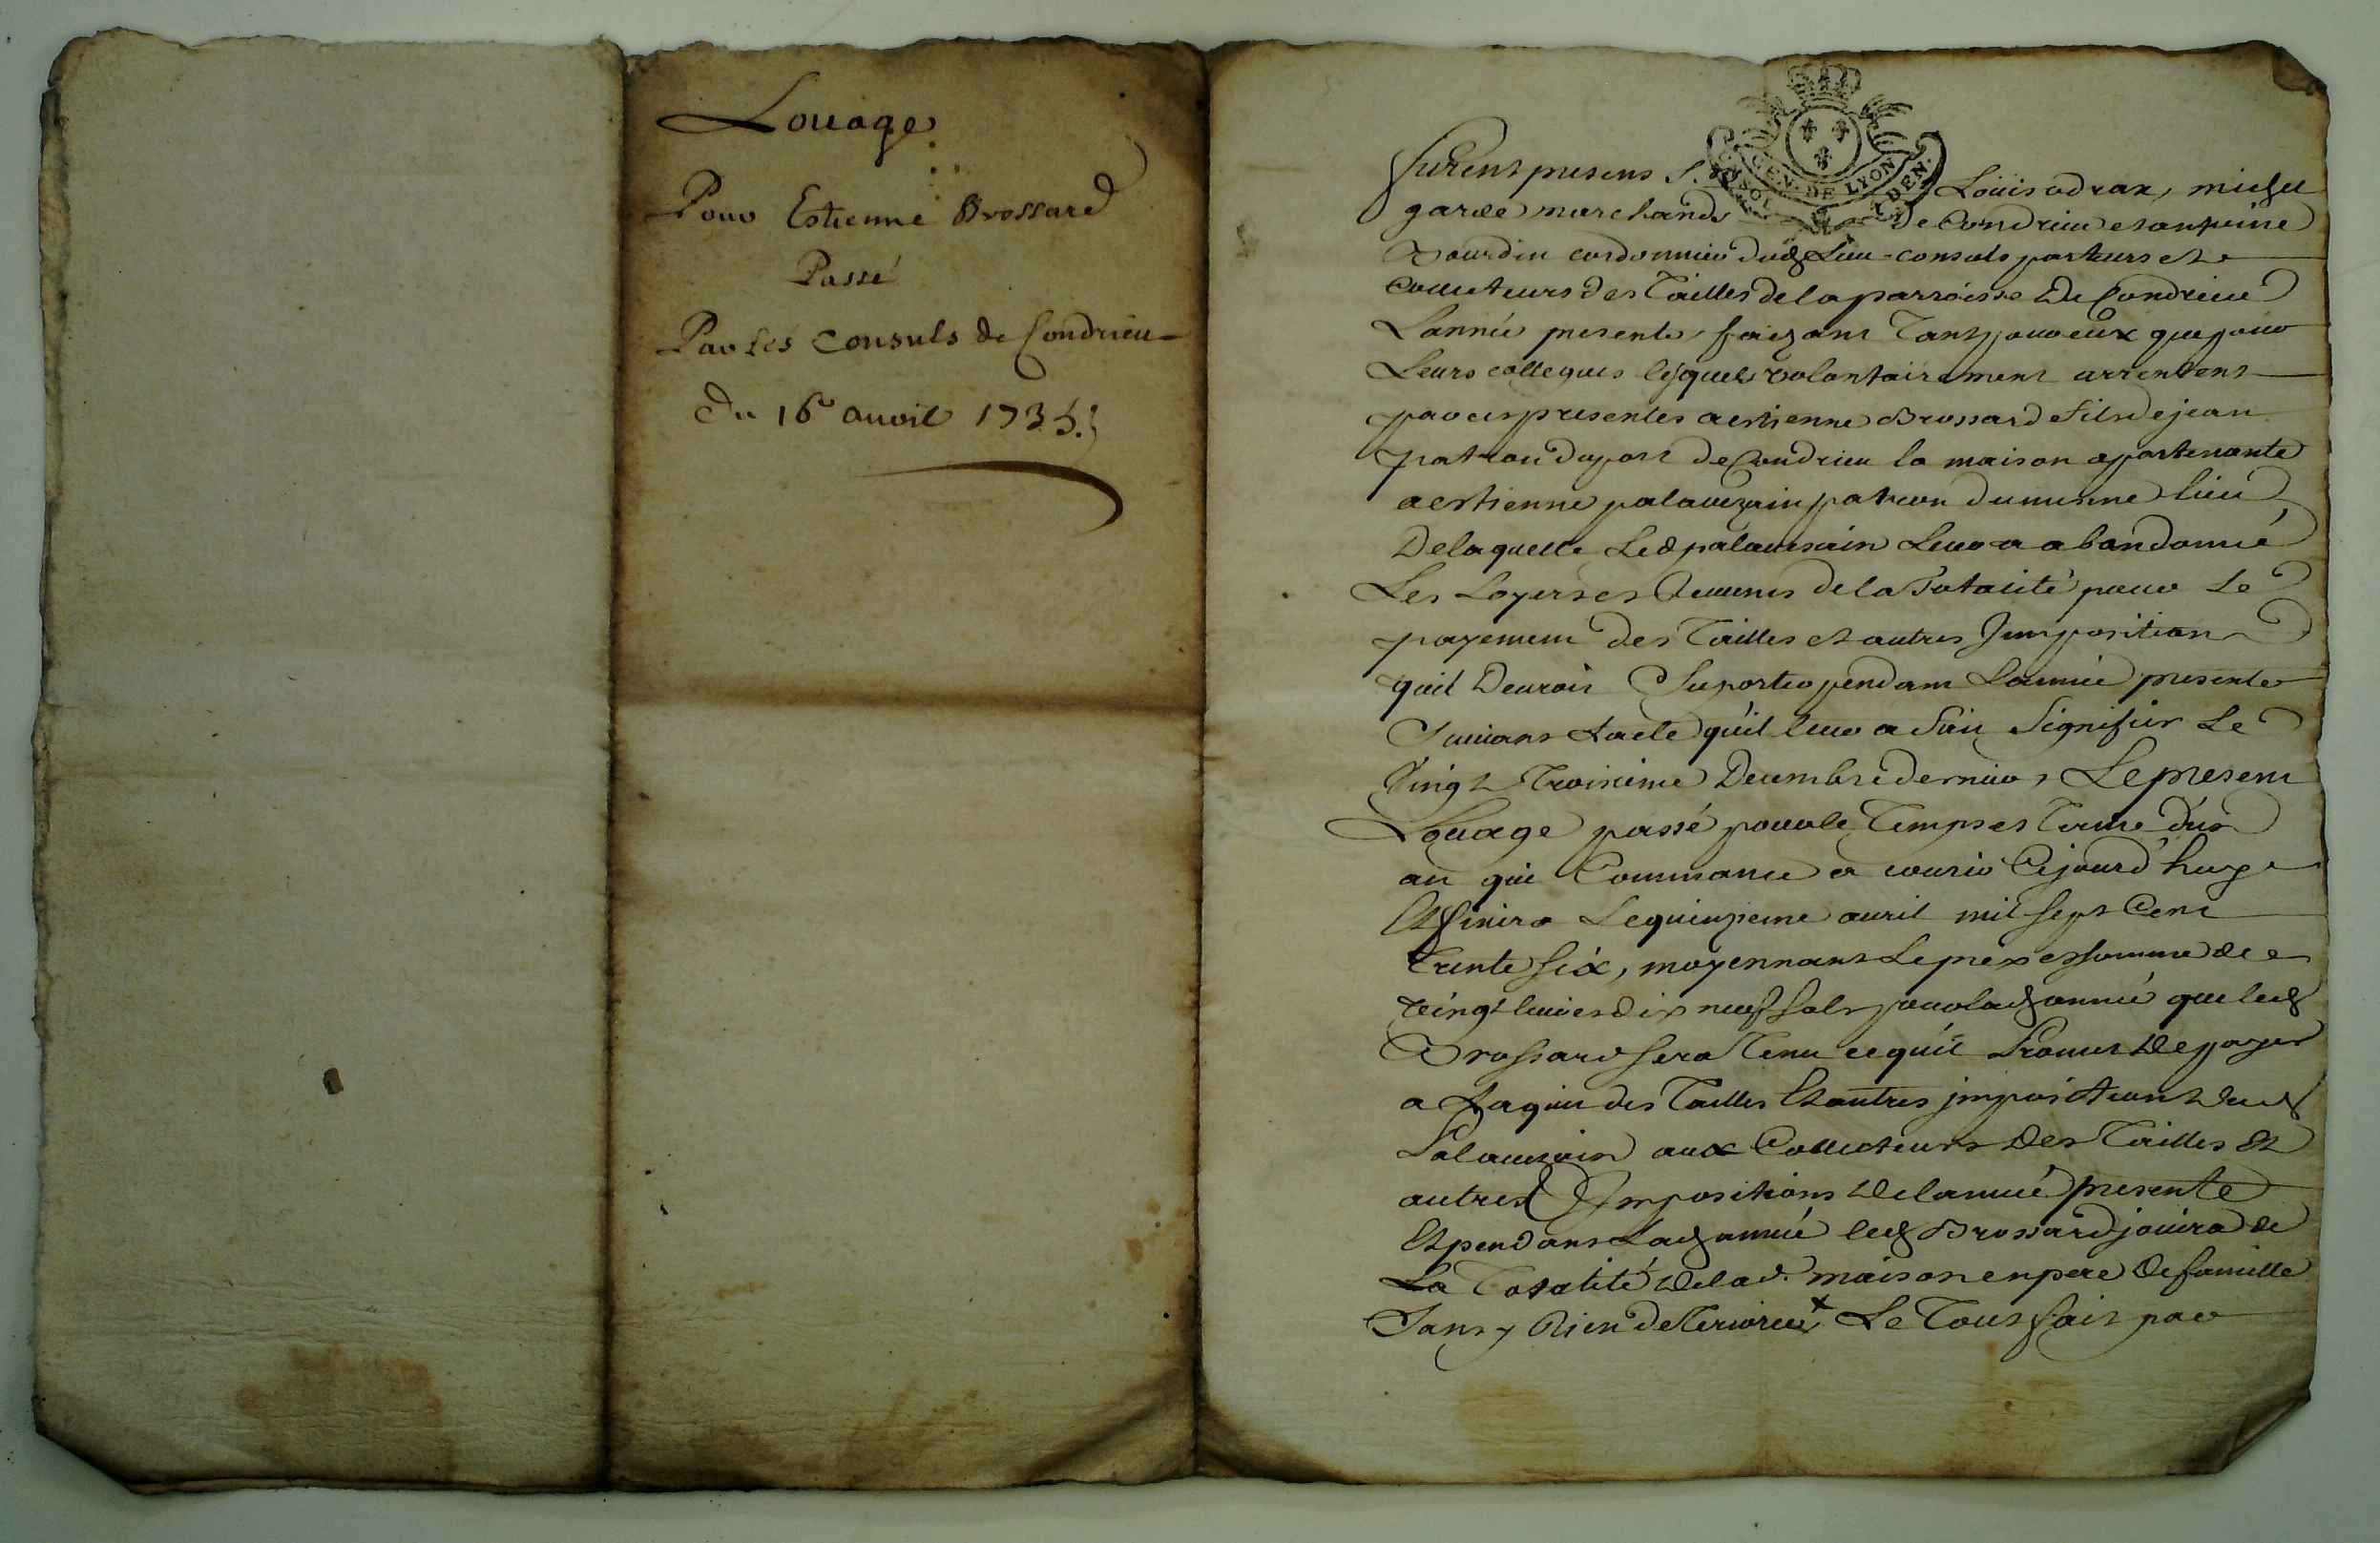 Louage
Pour Estienne Brossard
Passé
Par Les Consuls de Condrieu
du 16e avril 1735.
GEN. DE LYON
furent presens S. Louis adrax, michel
garde marchands de Condrieu et antoine
Bourdin cordonnier dud Lieu consuls porteurs et
Collecteurs des Tailles de la parroisse De Condrieu
Lannée presente, faisant Tant pour eux que pour
Leurs collegues lesquels volontairement arrentent
par ces presentes a estienne Brossard fils de jean
patron du port de Condrieu la maison apartenante
a estienne palauezain patron du mesme lieu
De laquelle Led palauesain Leur a abandonné
Les Loyers et Reuenus de la Totalité pour Le
payement des Tailles et autres Jmposition
quil Deuroit Suporter pendant Lannée presente
Suiuant Lacte qu'il leur a fait Signifier Le
Vingt Troisieme Decembre dernier, Le present
Louage passé pour le Temps et Terme d'un
an qui Commance a courir Cejourd'huy
Et finira Le quinzieme auril mil sept Cent
Trente Six, moyennant Le prix et somme de
vingt liures dix neuf sols pour lad année que led
Brossard sera Tenu ce qu'il Promet De payer
a Laquit des Tailles Et autres jmpositions dud
Palauezain aux Collecteurs Des Tailles Et
autres Jmpositions De lannée presente
Et pendant Lad année led Brossard jouira de
La Totalité De lad. maison en pere De famille
Sans y Rien deteriorer x Le Tout fait par